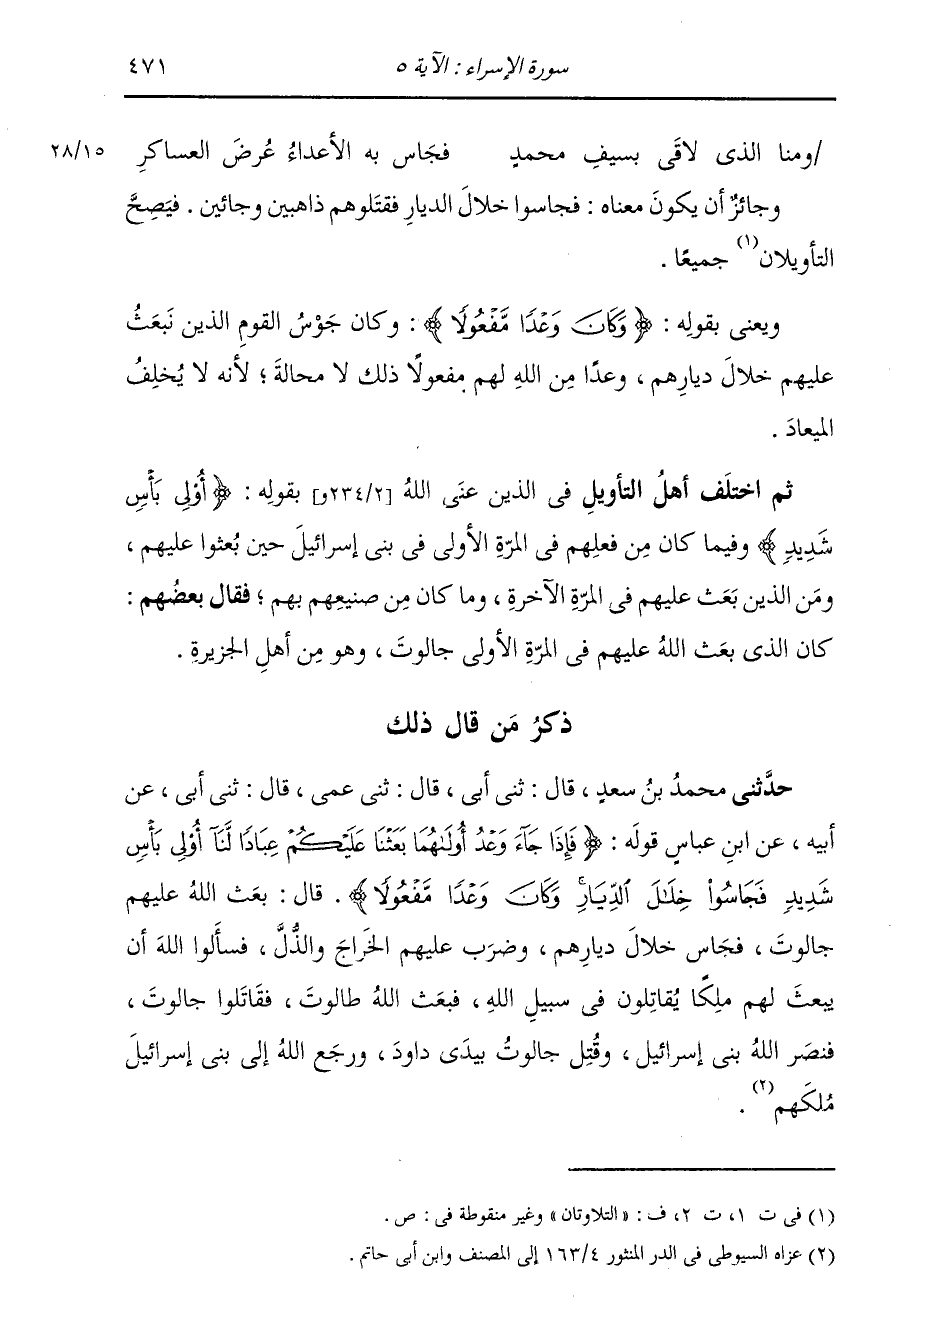 سورة الإسراء : الآية ٥ ٤٧١
/ومنا الذى لاقَى بسيفِ محمدٍ فجَاس به الأعداءُ عُرضَ العساكرِ ٢٨/١٥
وجائزٌ أن يكونَ معناه : فجاسوا خلالَ الديارِ فقتَلوهم ذاهبين وجائين . فيَصِحَّ
التأويلان(١) جميعًا .
ويعنى بقولِه : ﴿وَكَانَ وَعْدًا مَّفْعُولًا﴾ : وكان جَوْسُ القومِ الذين نَبعَثُ
عليهم خلالَ ديارِهم ، وعدًا مِن اللهِ لهم مفعولًا ذلك لا محالةَ ؛ لأنه لا يُخلِفُ
الميعادَ .
ثم اختلَف أهلُ التأويلِ فى الذين عنَى اللهُ [٢٣٤/٢و] بقولِه : ﴿أُوْلِى بَأْسٍ
شَدِيدٍ﴾ وفيما كان مِن فعلِهم فى المرّةِ الأولى فى بنى إسرائيلَ حين بُعثوا عليهم ،
ومَن الذين بَعَث عليهم فى المرّةِ الآخرةِ ، وما كان مِن صنيعِهم بهم ؛ فقال بعضُهم :
كان الذى بعَث اللهُ عليهم فى المرّةِ الأولى جالوتَ ، وهو مِن أهلِ الجزيرةِ .
ذكرُ مَن قال ذلك
حدَّثنى محمدُ بنُ سعدٍ ، قال : ثنى أبى ، قال : ثنى عمى ، قال : ثنى أبى ، عن
أبيه ، عن ابنِ عباسٍ قولَه : ﴿فَإِذَا جَآءَ وَعْدُ أُولَىٰهُمَا بَعَثْنَا عَلَيْكُمْ عِبَادًا لَّنَآ أُوْلِى بَأْسٍ
شَدِيدٍ فَجَاسُواْ خِلَٰلَ ٱلدِّيَارِۚ وَكَانَ وَعْدًا مَّفْعُولًا﴾ . قال : بعَث اللهُ عليهم
جالوتَ ، فجَاس خلالَ ديارِهم ، وضرَب عليهم الخَراجَ والذُّلَّ ، فسأَلوا اللهَ أن
يبعثَ لهم ملِكًا يُقاتِلون فى سبيلِ اللهِ ، فبعَث اللهُ طالوتَ ، فقَاتَلوا جالوتَ ،
فنصَر اللهُ بنى إسرائيل ، وقُتِل جالوتُ بيدَى داودَ ، ورجَع اللهُ إلى بنى إسرائيلَ
مُلكَهم(٢) .
(١) فى ت ١، ت ٢، ف : «التلاوتان» وغير منقوطة فى : ص .
(٢) عزاه السيوطى فى الدر المنثور ١٦٣/٤ إلى المصنف وابن أبى حاتم .